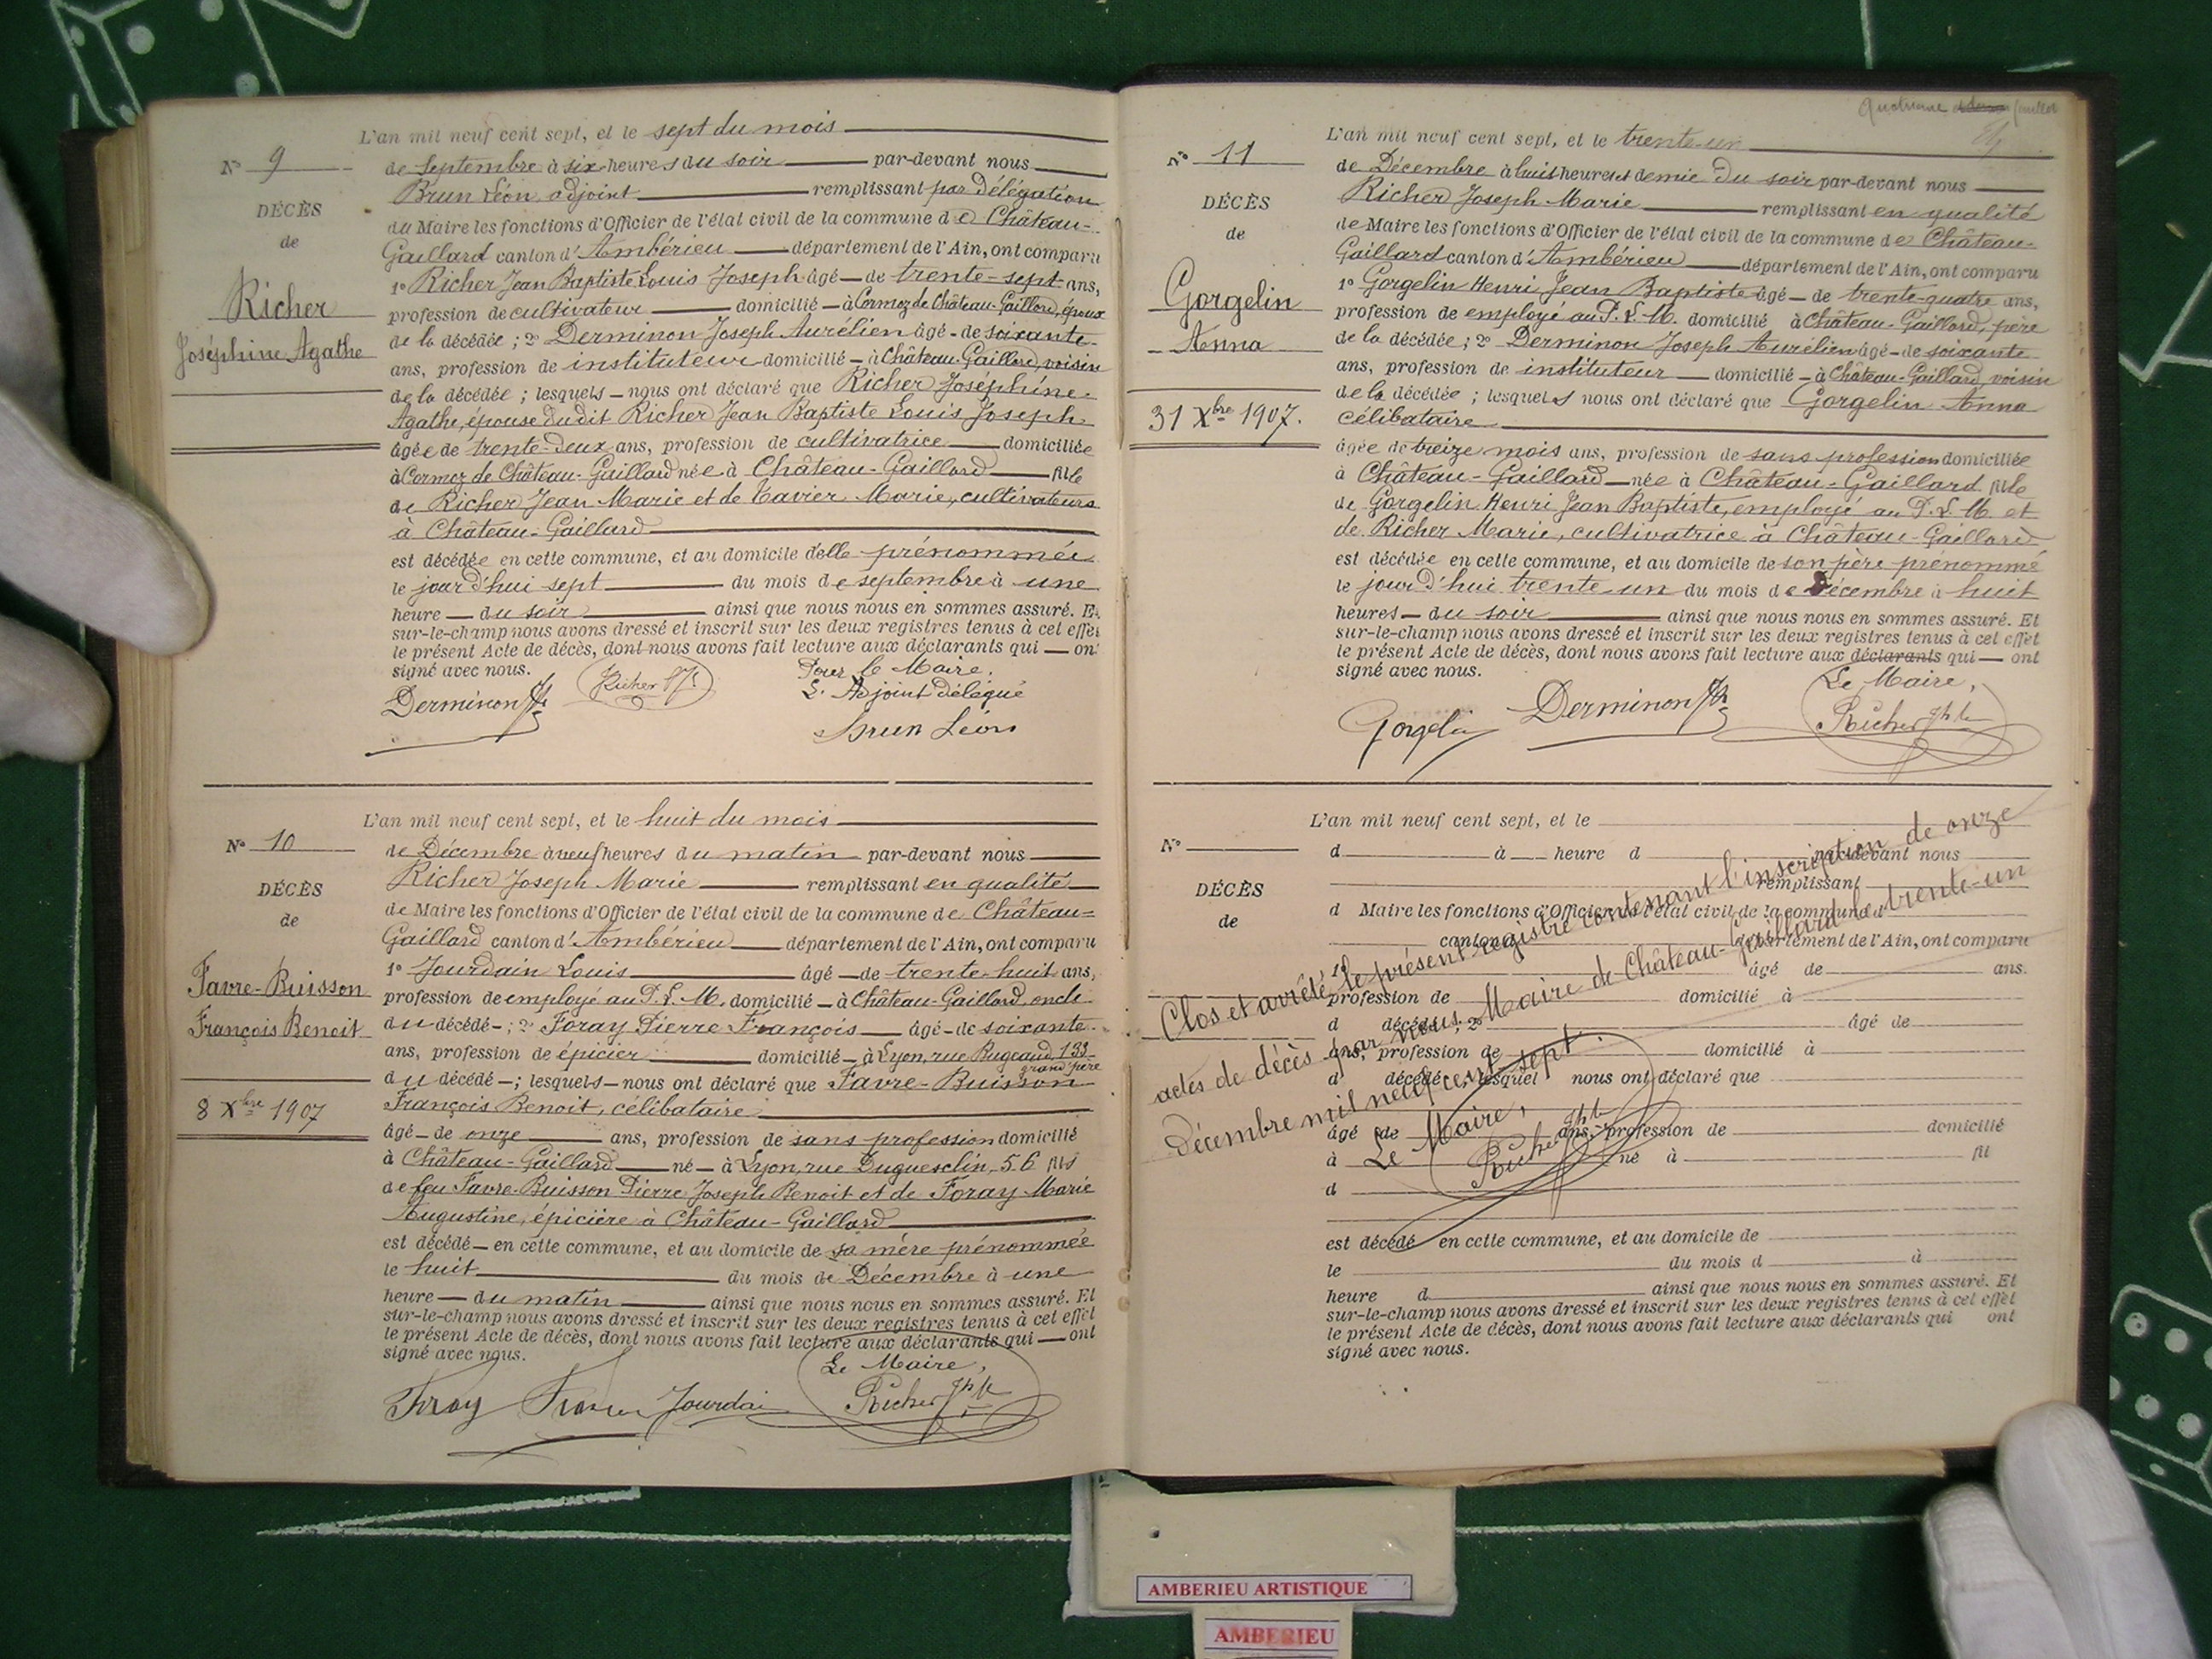 L'an mil neuf cent sept, et le sept du mois
N° 9
de Septembre à six heures du soir par-devant nous
Brun Léon adjoint remplissant par Délégation
DÉCÈS
du Maire les fonctions d'Officier de l'état civil de la commune de Château-
de
Gaillard canton d'Ambérieu département de l'Ain, ont comparu
1° Richer Jean Baptiste Louis Joseph âgé de trente-sept ans,
Richer
profession de cultivateur domicilié à Cormoz de Château-Gaillard, époux
Joséphine Agathe
de la décédée ; 2° Derminon Joseph Aurélien âgé de soixante
ans, profession de instituteur domicilié à Château-Gaillard, voisin
de la décédée ; lesquels nous ont déclaré que Richer Joséphine
Agathe, épouse dudit Richer Jean Baptiste Louis Joseph
âgée de trente-deux ans, profession de cultivatrice domiciliée
à Cormoz de Château-Gaillard née à Château-Gaillard fille
de Richer Jean Marie et de Tavier Marie, cultivateurs
à Château-Gaillard
est décédée en cette commune, et au domicile d'elle prénommée
le jourd'hui sept du mois de septembre à une
heure du soir ainsi que nous nous en sommes assuré. Et
sur-le-champ nous avons dressé et inscrit sur les deux registres tenus à cet effet
le présent Acte de décès, dont nous avons fait lecture aux déclarants qui ont
signé avec nous.
Pour le Maire,
L'Adjoint délégué
Derminon Jh Richer
Brun Léon
L'an mil neuf cent sept, et le huit du mois
N° 10
de Décembre à neuf heures du matin par-devant nous
Richer Joseph Marie remplissant en qualité
DÉCÈS
de Maire les fonctions d'Officier de l'état civil de la commune de Château-
de
Gaillard canton d'Ambérieu département de l'Ain, ont comparu
1° Jourdain Louis âgé de trente-huit ans,
Favre-Buisson
profession de employé au P.L.M. domicilié à Château-Gaillard, oncle
François Benoit
du décédé ; 2° Foray Pierre François âgé de soixante
ans, profession de épicier domicilié à Lyon, rue Bugeaud, 133
grand père
du décédé ; lesquels nous ont déclaré que Favre-Buisson
8 Xbre 1907
François Benoit, célibataire
âgé de onze ans, profession de sans profession domicilié
à Château-Gaillard né à Lyon, rue Duguesclin, 56 fils
de feu Favre-Buisson Pierre Joseph Benoit et de Foray Marie
Augustine, épicière à Château-Gaillard
est décédé en cette commune, et au domicile de sa mère prénommée
le huit du mois de Décembre à une
heure du matin ainsi que nous nous en sommes assuré. Et
sur-le-champ nous avons dressé et inscrit sur les deux registres tenus à cet effet
le présent Acte de décès, dont nous avons fait lecture aux déclarants qui ont
signé avec nous.
Le Maire,
Foray Jourdain Richer Jph
feuillet
L'an mil neuf cent sept, et le trente-un
N° 11
de Décembre à huit heures et demie du soir par-devant nous
Richer Joseph Marie remplissant en qualité
DÉCÈS
de Maire les fonctions d'Officier de l'état civil de la commune de Château-
de
Gaillard canton d'Ambérieu département de l'Ain, ont comparu
1° Gorgelin Henri Jean Baptiste âgé de trente-quatre ans,
Gorgelin
profession de employé au P.L.M. domicilié à Château-Gaillard, père
Anna
de la décédée ; 2° Derminon Joseph Aurélien âgé de soixante
ans, profession de instituteur domicilié à Château-Gaillard, voisin
de la décédée ; lesquels nous ont déclaré que Gorgelin Anna
31 Xbre 1907.
célibataire
âgée de treize mois ans, profession de sans profession domiciliée
à Château-Gaillard née à Château-Gaillard fille
de Gorgelin Henri Jean Baptiste, employé au P.L.M. et
de Richer Marie, cultivatrice à Château-Gaillard
est décédée en cette commune, et au domicile de son père prénommé
le jourd'hui trente-un du mois de Décembre à huit
heures du soir ainsi que nous nous en sommes assuré. Et
sur-le-champ nous avons dressé et inscrit sur les deux registres tenus à cet effet
le présent Acte de décès, dont nous avons fait lecture aux déclarants qui ont
signé avec nous.
Le Maire,
Gorgelin Derminon Jh Richer Jph
L'an mil neuf cent sept, et le
N°
d à heure d par-devant nous
remplissant
DÉCÈS
d Maire les fonctions d'Officier de l'état civil de la commune d
de
canton d département de l'Ain, ont comparu
1° âgé de ans.
profession de domicilié à
d décédé ; 2° âgé de
ans, profession de domicilié à
d décédé ; lesquel nous ont déclaré que
âgé de ans, profession de domicilié
à né à fil
d
est décédé en cette commune, et au domicile de
le du mois d à
heure d ainsi que nous nous en sommes assuré. Et
sur-le-champ nous avons dressé et inscrit sur les deux registres tenus à cet effet
le présent Acte de décès, dont nous avons fait lecture aux déclarants qui ont
signé avec nous.
Clos et arrêté le présent registre contenant l'inscription de onze
actes de décès par nous Maire de Château-Gaillard le trente-un
Décembre mil neuf cent sept.
Le Maire,
Richer Jph
AMBERIEU ARTISTIQUE
AMBERIEU